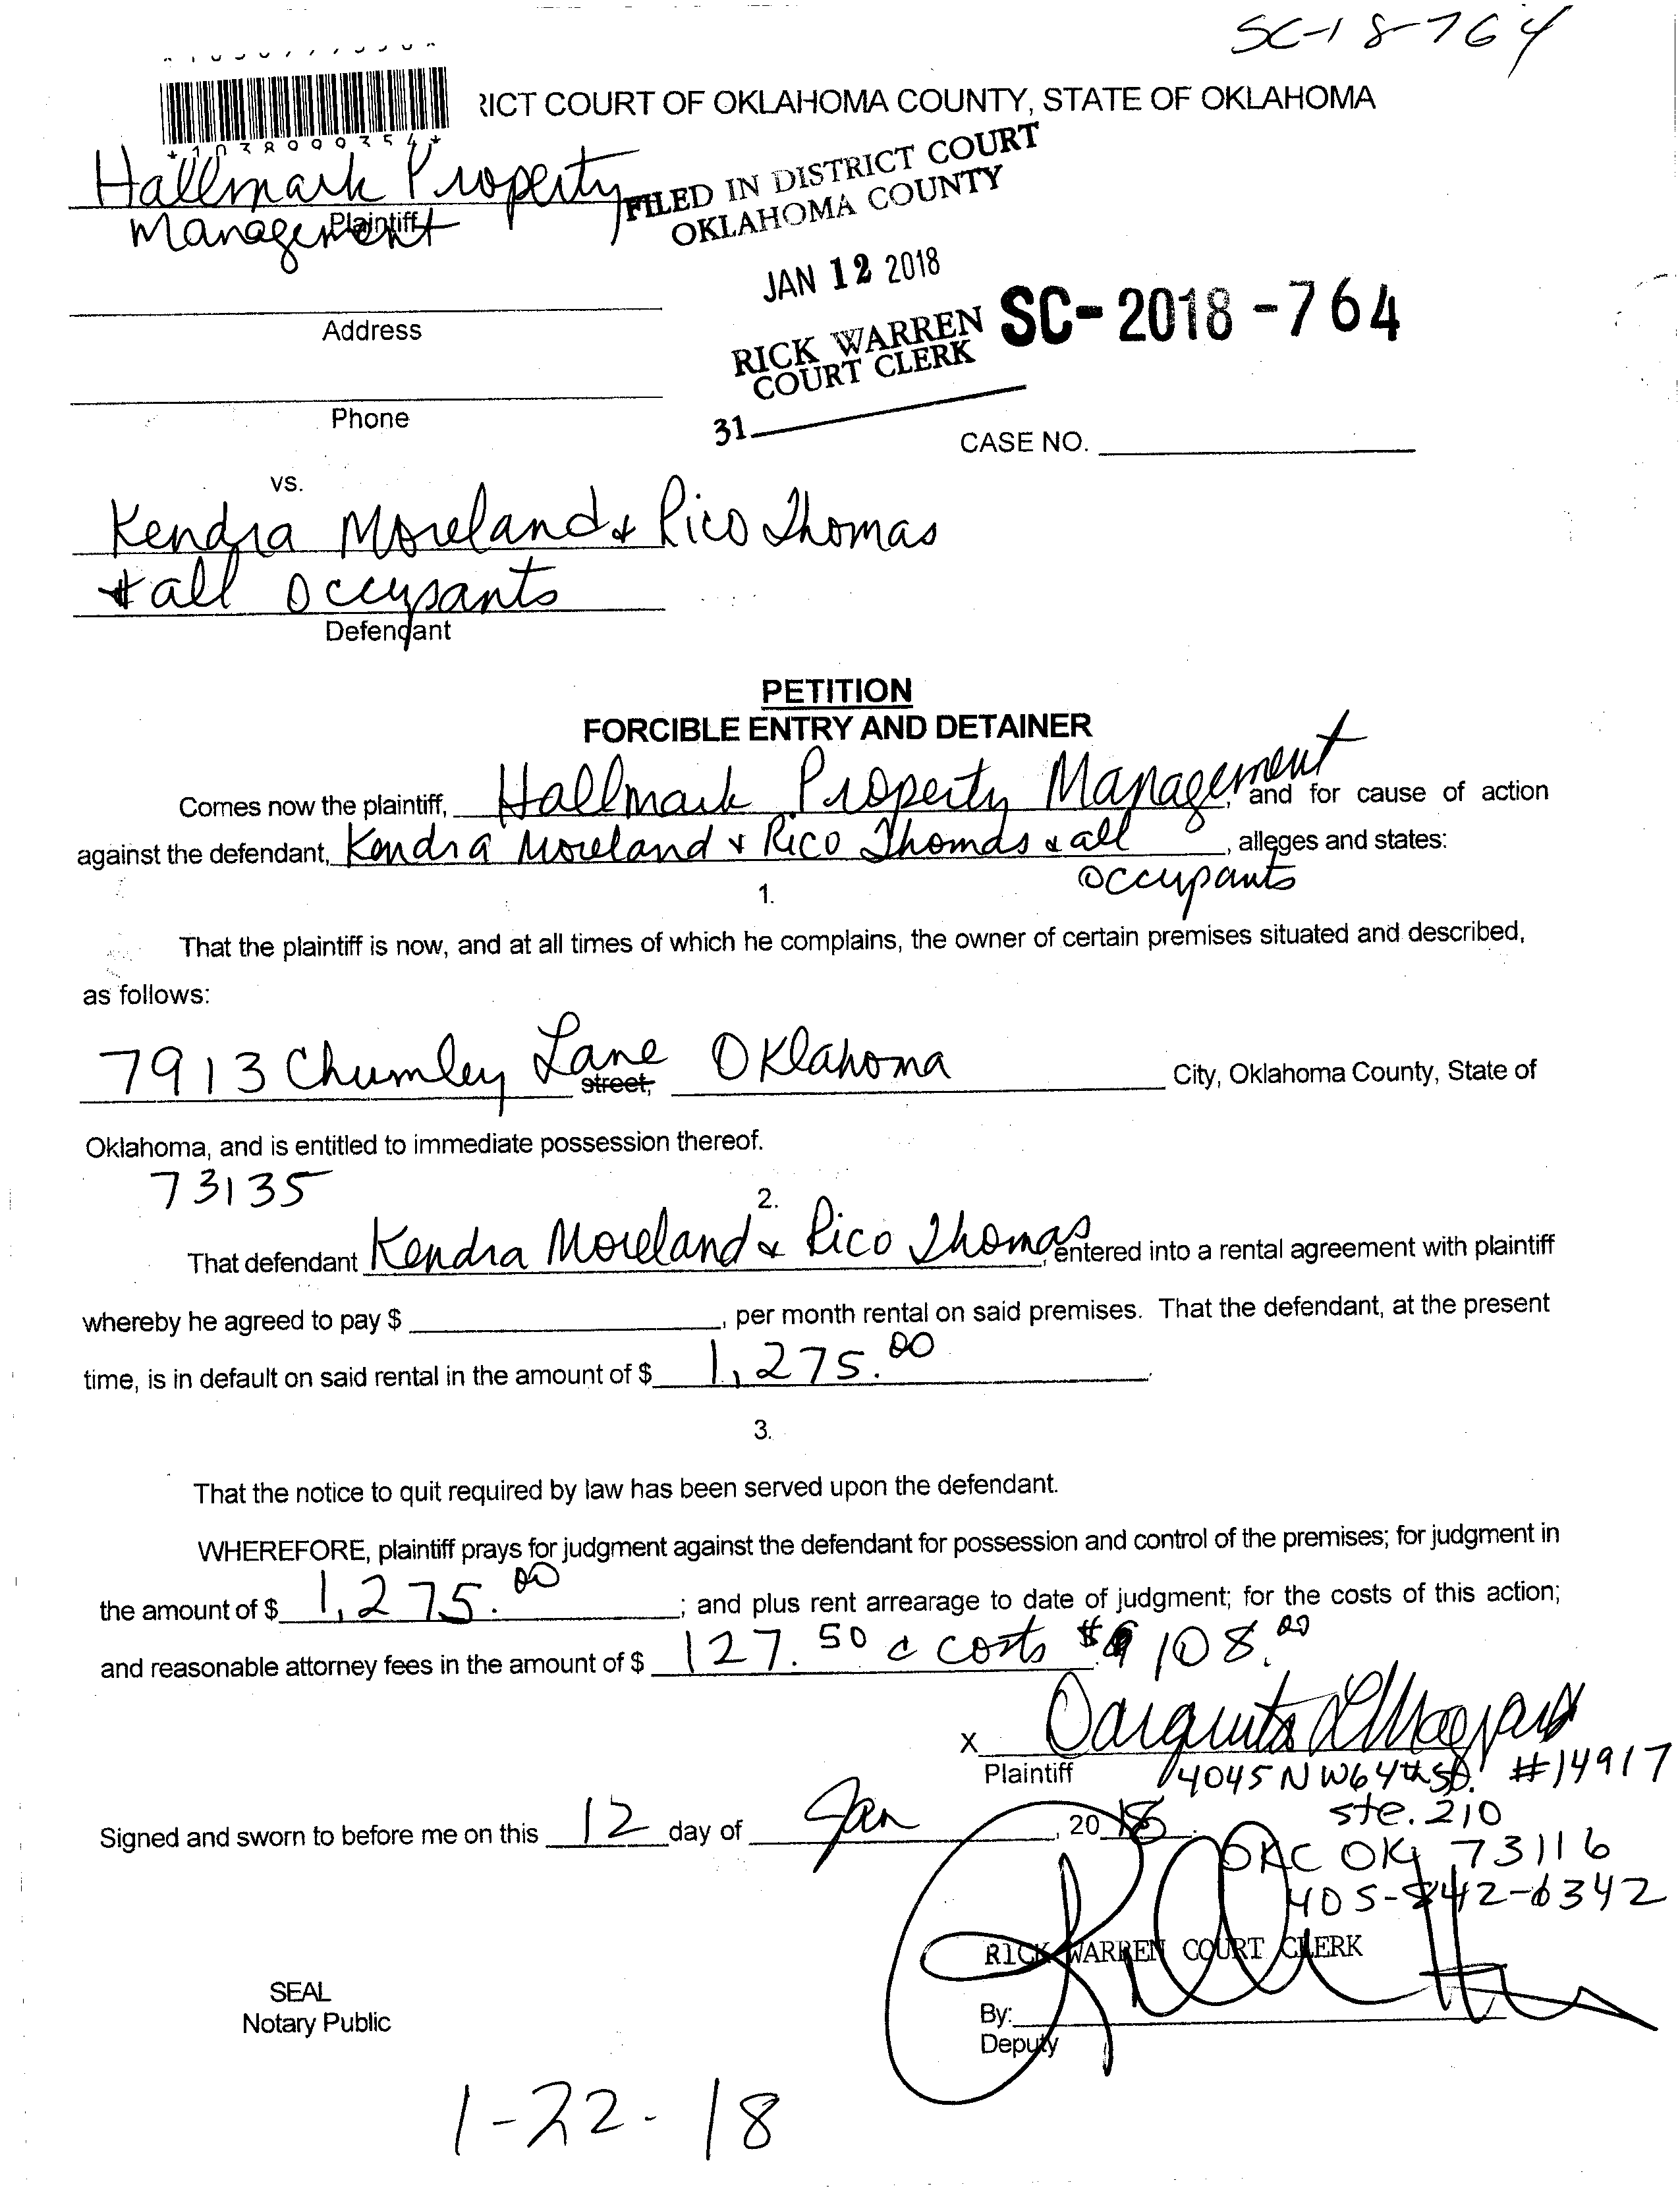 SC-18-764
RICT COURT OF OKLAHOMA COUNTY, STATE OF OKLAHOMA
*1038000354*
Hallmark Property
Management
Plaintiff
FILED IN DISTRICT COURT
OKLAHOMA COUNTY
JAN 12 2018
RICK WARREN
COURT CLERK
31
SC-2018-764
Address
Phone
CASE NO.
vs.
Kendra Moreland & Rico Thomas
& all Occupants
Defendant
PETITION
FORCIBLE ENTRY AND DETAINER
Comes now the plaintiff, Hallmark Property Management, and for cause of action
against the defendant, Kendra Moreland & Rico Thomas & all occupants, alleges and states:
1.
That the plaintiff is now, and at all times of which he complains, the owner of certain premises situated and described,
as follows:
7913 Chumley Lane street, Oklahoma City, Oklahoma County, State of
Oklahoma, and is entitled to immediate possession thereof.
73135
2.
That defendant Kendra Moreland & Rico Thomas, entered into a rental agreement with plaintiff
whereby he agreed to pay $ , per month rental on said premises. That the defendant, at the present
time, is in default on said rental in the amount of $ 1,275.00.
3.
That the notice to quit required by law has been served upon the defendant.
WHEREFORE, plaintiff prays for judgment against the defendant for possession and control of the premises; for judgment in
the amount of $ 1,275.00; and plus rent arrearage to date of judgment; for the costs of this action;
and reasonable attorney fees in the amount of $ 127.50 c costs $ 108.00
X
Plaintiff
4045 NW 64th St. #14917
Ste. 210
OKC OK 73116
405-842-6342
Signed and sworn to before me on this 12 day of Jan, 2018.
RICK WARREN COURT CLERK
SEAL
Notary Public
By:
Deputy
1-22-18